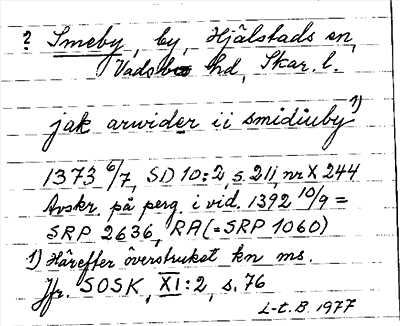 ? Smeby, by, Hjälstads sn,
Vadsbo hd, Skar. l.
jak arwider ii smidiuby 1)
1373 6/7, SD 10:2, s. 211, nr X 244
Avskr. på perg. i vid. 1392 10/9 =
SRP 2636, RA (=SRP 1060)
1) Härefter överstruket kn ms.
Jfr. SOSK, XI:2, s. 76
L-t. B. 1977